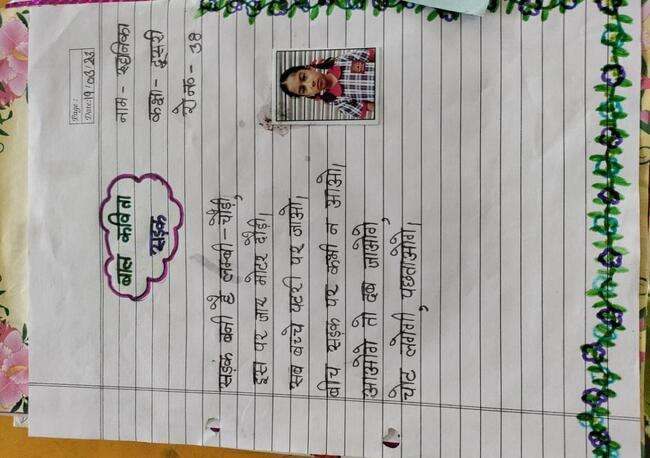 Page:
Date: 19/03/23
नाम - सहानिका
कक्षा - दूसरी
रो न० - 38
बाल कविता
सड़क
सड़क बनी है लम्बी - चौड़ी,
इस पर जाए मोटर दौड़ी।
सब बच्चे पटरी पर जाओ।
बीच सड़क पर कभी न आओ।
आओगे तो दब जाओगे
चोट लगेगी, पछताओगे।